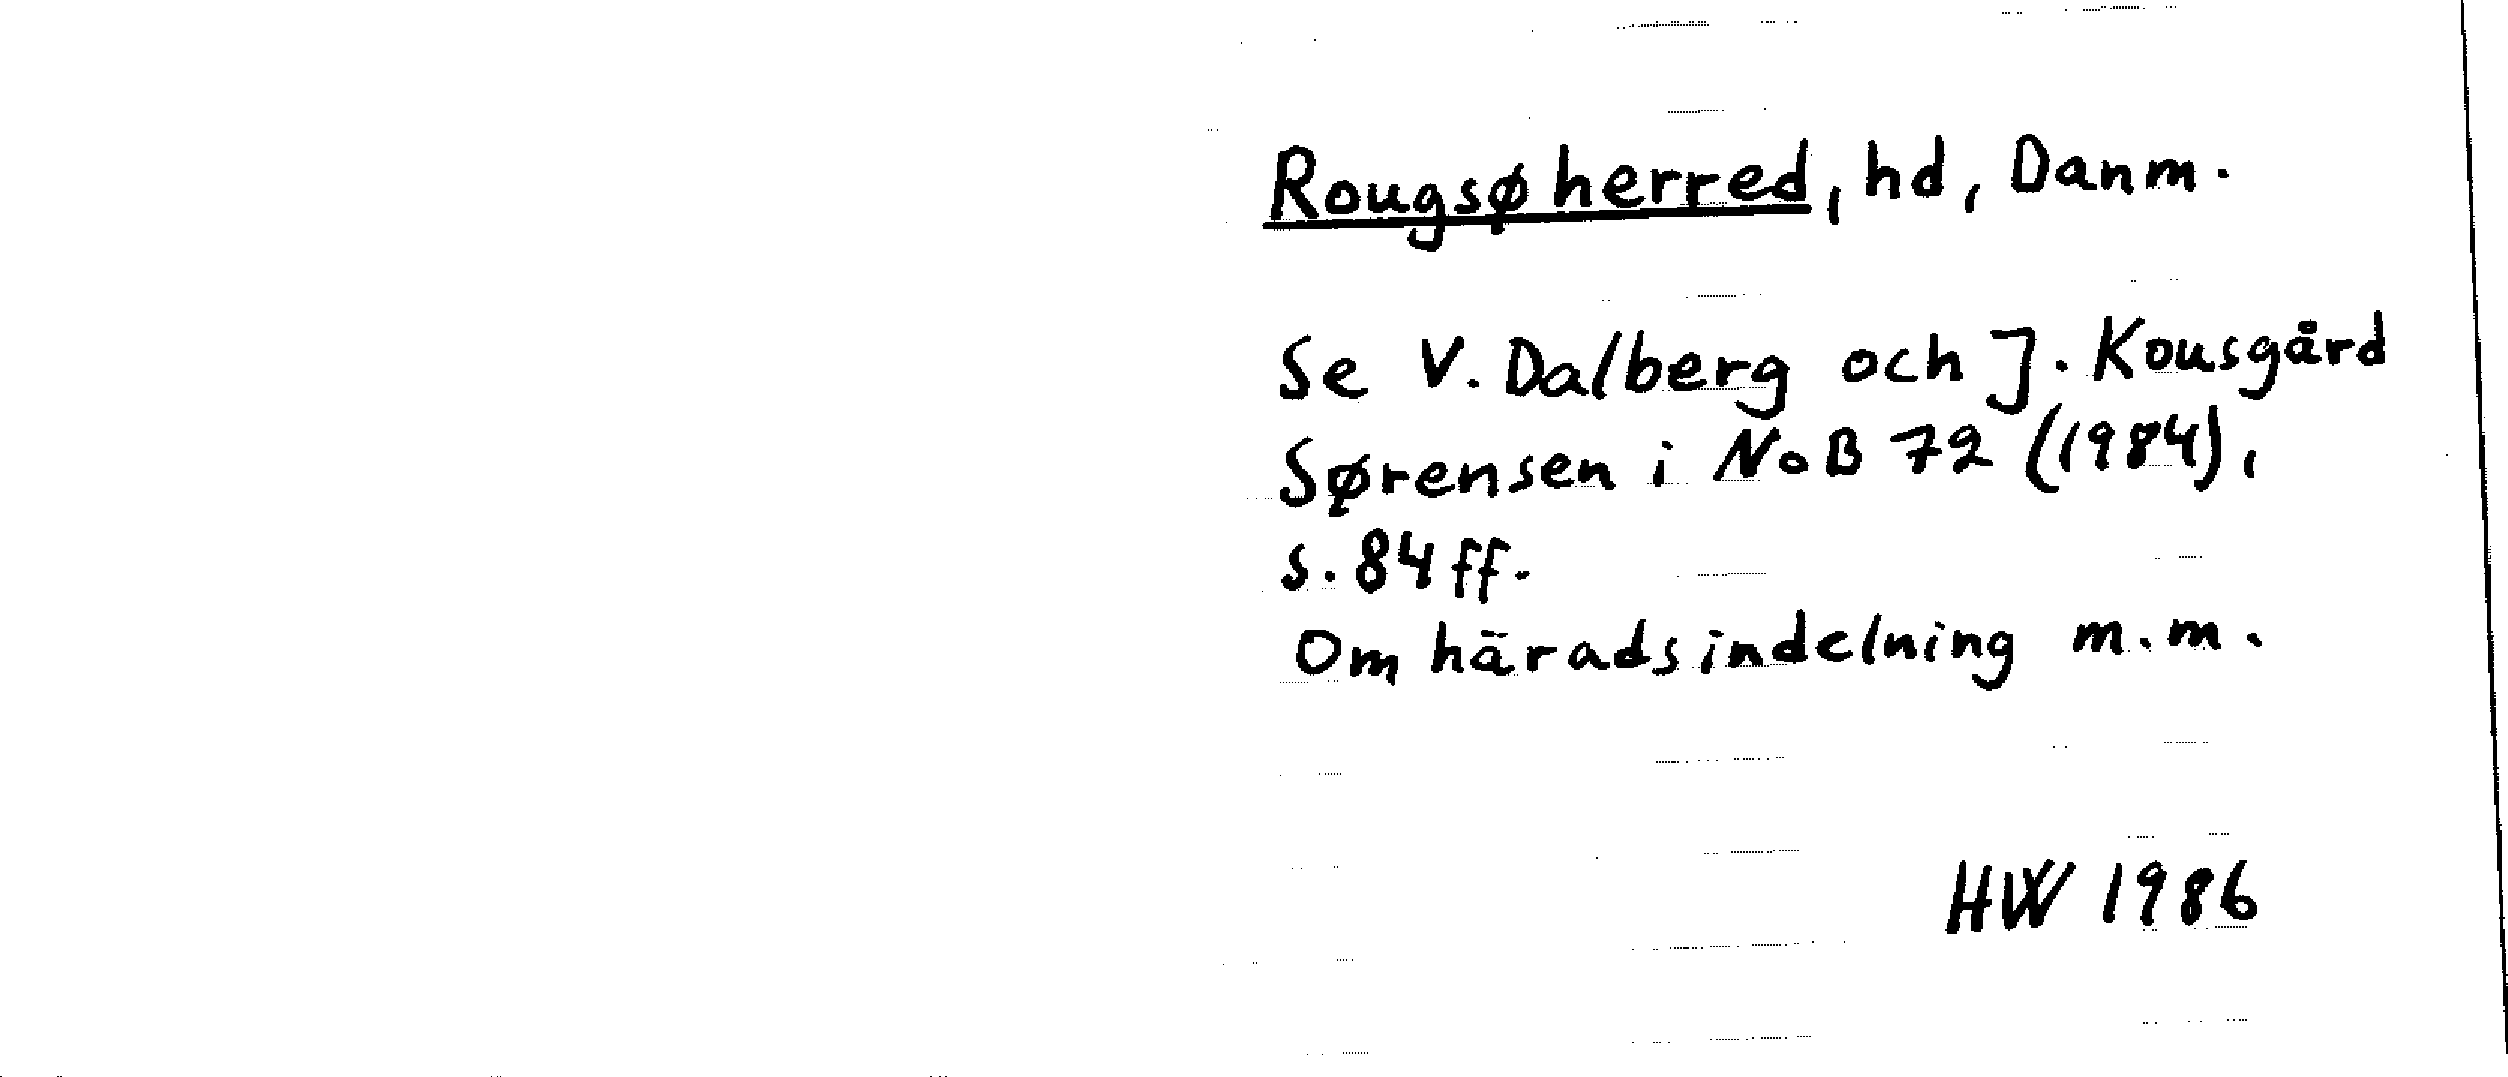 Rougsø herred, hd, Danm.
Se V. Dalberg och J. Kousgård
Sørensen i NoB 72 (1984),
s. 84 ff.
Om häradsindelning m.m.
HW 1986